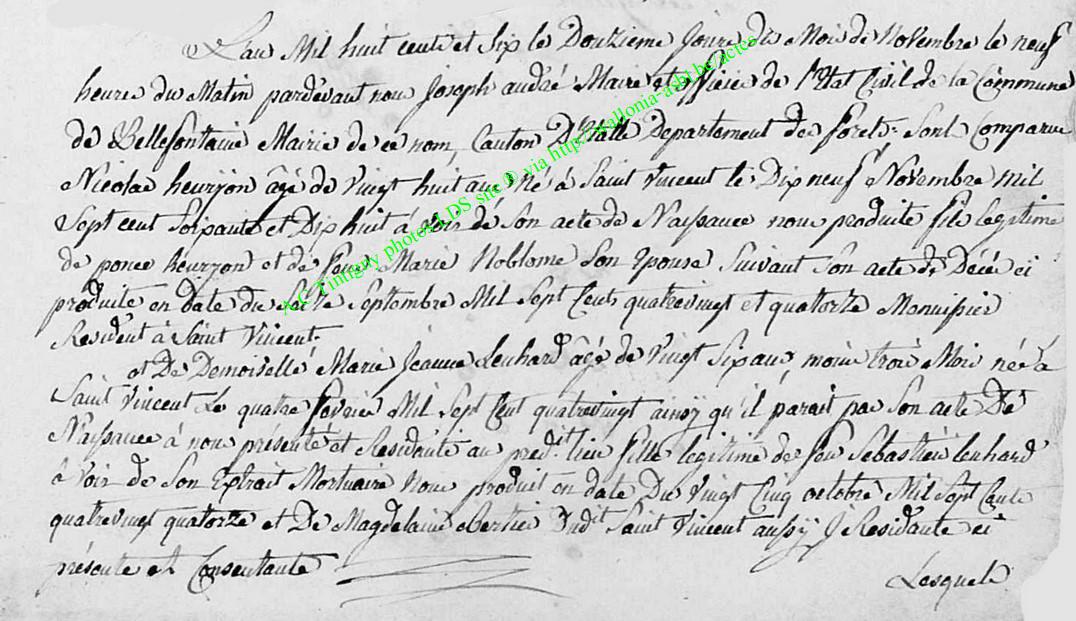 L'an Mil huit cent et Six le Douzieme Jour du Mois de Novembre le neuf
heure du Matin pardevant nou Joseph andré Maire et officie de l'Etat Civil de la Commune
de Bellefontaine Mairie de ce nom, Canton D'Etalle Departement des forets. Sont Comparue
Nicolae heurijon âgé de Vingt huit ans Né à Saint Vincent le Dix neuf Novembre Mil
Sept cent Soixante et Dix huit à Voir de Son acte de Naissance nou produite fils legitime
de ponce heurzon et de feue Marie Noblome Son Epouse Suivant Son acte de Décé ci
produite en date du Septembre Mil Sept Cents quatrevingt et quatorze Menuisier
Resident à Saint Vincent.
et De Demoiselle Marie Jeanne Lenhard âgé de Vingt Six ans, moin troi Moi née à
Saint Vincent Le quatre fevrier Mil Sept Cent quatrevingt ainsÿ qu'il parait pa Son acte De
Naissance à nou présenté et Residante au predit lieu fille legitime de feu Sebastien lenhard
à Voir de Son Extrait Mortuaire Nou produit en date Du Vingt Cinq octobre Mil Sept Cents
quatrevingt quatorze et De Magdelaine Saint Vincent aussÿ Residante ci
présente et Consentante
Lesquels
A.C. Tintigny photos LDS site © via http://wallonia-asbl.be/actes